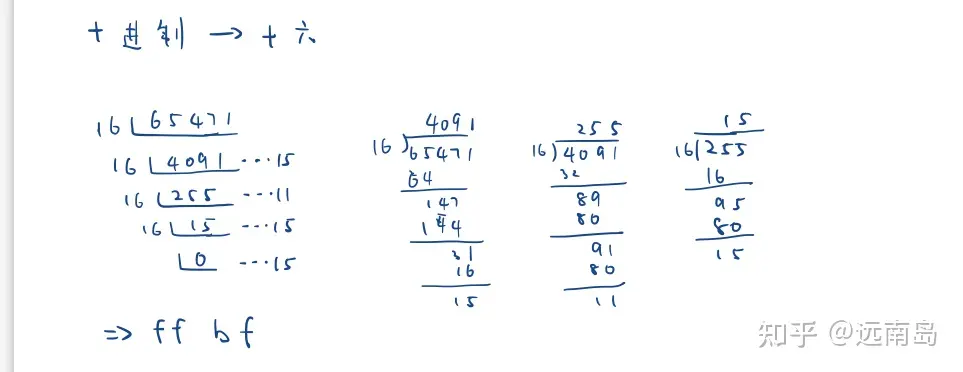 十进制 → 十六
16 65471
16 4091 ···15
16 255 ···11
16 15 ···15
0 ···15
=> ff bf
4091
16 65471
64
147
144
31
16
15
255
16 4091
32
89
80
91
80
11
15
16 255
16
95
80
15
知乎 @远南岛